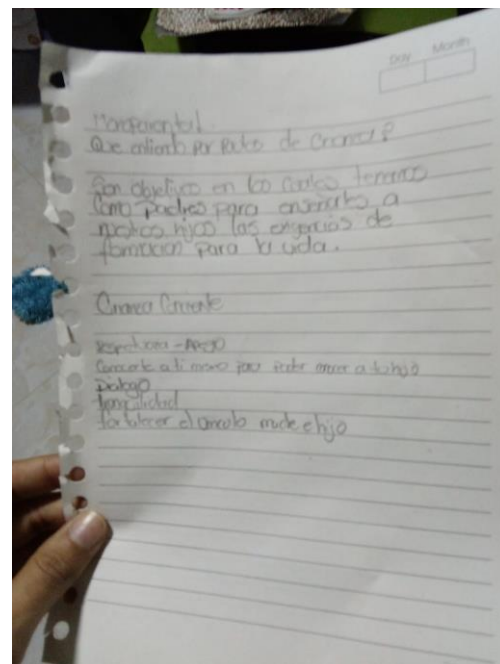 Day Month
Monoparental.
Que entiendo por Pautas de Crianza?
Son objetivos en los cuales tenemos
Como padres para enseñarles a
nuestros hijos las exigencias de
formacion para la vida.
Crianza
Respetuosa - Apego
Conocerte a ti mismo para Poder conocer a tu hijo
Dialogo
tranquilidad
fortalecer el vinculo madre e hijo